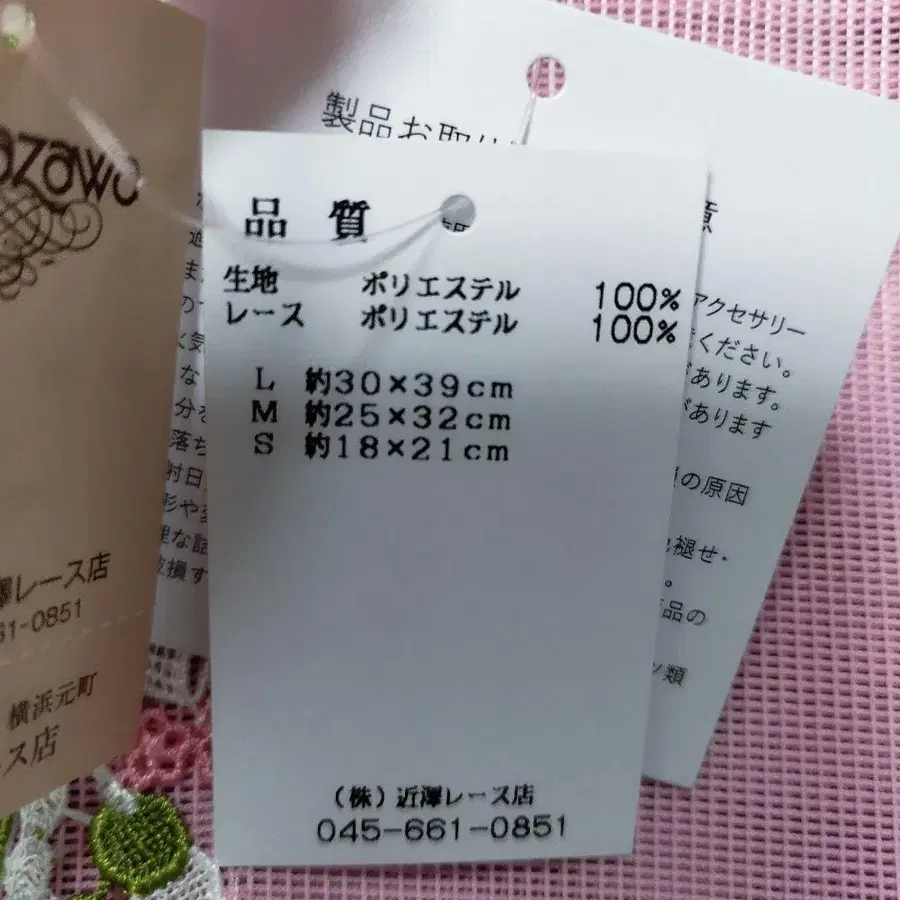 製品お取り
品 質
生地 ポリエステル 100%
レース ポリエステル 100%
L 約30×39cm
M 約25×32cm
S 約18×21cm
(株)近澤レース店
045-661-0851
アクセサリー
ください。
あります。
があります
の原因
褪せ・
品の
類
分を
落ち
射日
形や
損す
澤レース店
61-0851
横浜元町
ス店